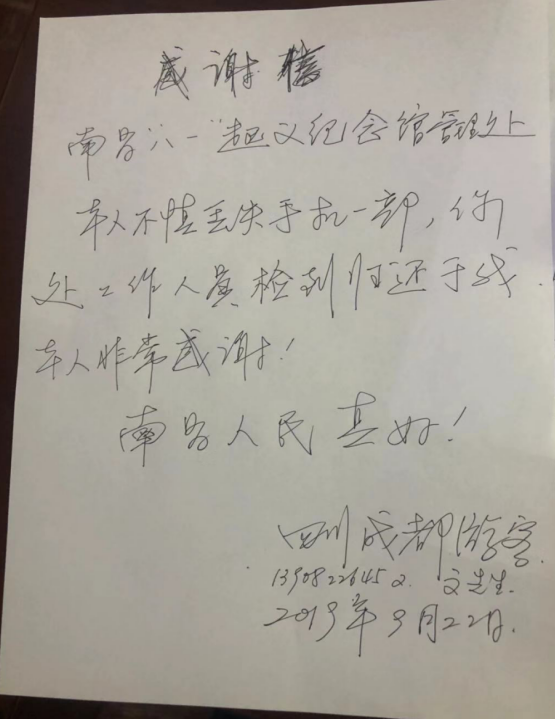 感谢信
南昌“八一”起义纪念馆管理处
本人不慎丢失手机一部，你
处工作人员检到归还于我.
本人非常感谢！
南昌人民真好！
四川成都游客
13908226452. 文先生.
2019年9月22日.